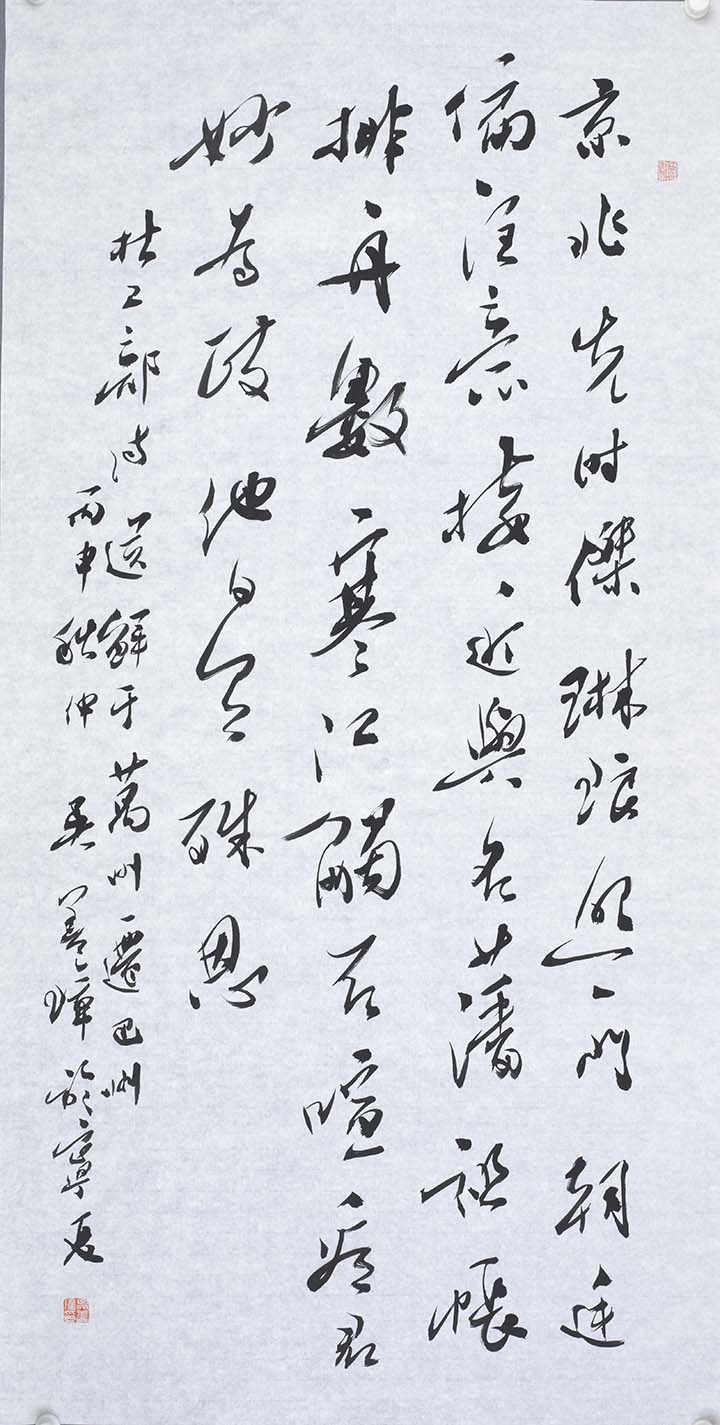 京兆先时傑琳琅照一门朝廷
偏注意接近與名藩祖帳
排舟數寒江觸石喧看君
妙为政他日有殊恩
杜工部诗送鮮于萬州遷巴州
丙申秋仲吴善璋於寧夏